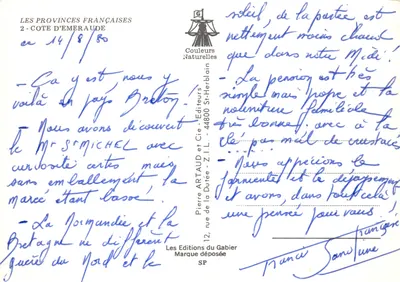 LES PROVINCES FRANÇAISES
2 - COTE D'EMERAUDE
Couleurs
Naturelles
Pierre ARTAUD et Cie - Editeurs
12, rue de la Durée - Z.I.L. - 44800 St-Herblain
Les Editions du Gabier
Marque déposée
SP
en 14/8/80
- Ça y est, nous y
voilà en pays Breton!
- Nous avons découvert
le Mt St MICHEL avec
curiosité certes mais
sans emballement, la
marée étant basse.
- La Normandie et la
Bretagne ne diffèrent
guère du Nord et le
soleil, de la partie, est
nettement moins chaud
que dans notre Midi!
- La pension est très
simple mais propre et la
nourriture familiale
très bonne, avec à la
clé pas mal de crustacés...
- Nous apprécions la
et le dépaysement
et avons, dans tout cela
une pensée pour vous!
Françoise
Francis